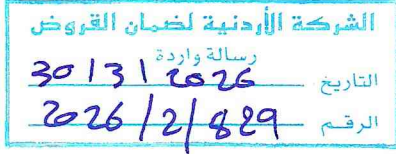 الشركة الأردنية لضمان القروض
رسالة واردة
التاريخ 30/3/2026
الرقم 2026/2/829